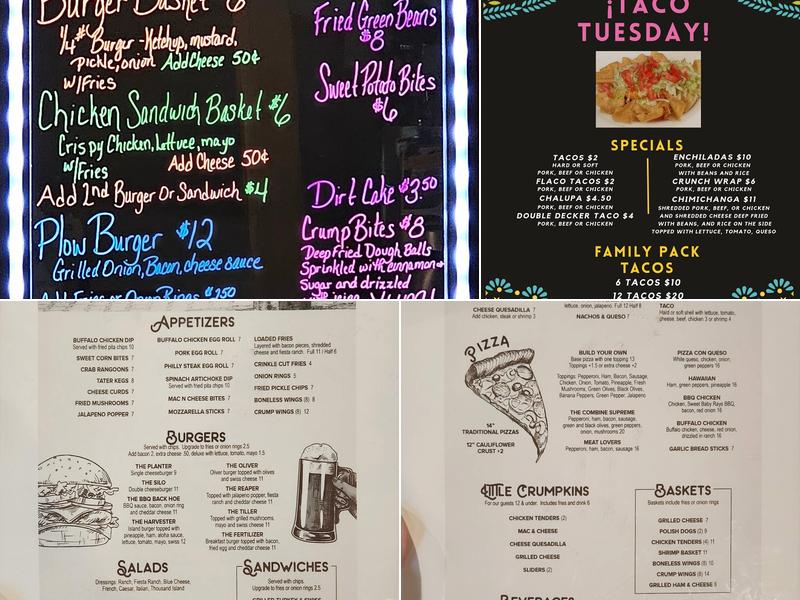 Burger Basket 6
1/4# Burger - Ketchup, mustard,
pickle, onion Add Cheese 50¢
w/Fries
Chicken Sandwich Basket $6
Crispy Chicken, Lettuce, mayo
w/Fries Add Cheese 50¢
Add 2nd Burger Or Sandwich $4
Plow Burger $12
Grilled Onion, Bacon, cheese sauce
Add Fries or Onion Rings $2.50
Fried Green Beans
$8
Sweet Potato Bites
$6
Dirt Cake $3.50
Crump Bites $8
Deep Fried Dough Balls
Sprinkled with cinnamon+
Sugar and drizzled
¡TACO
TUESDAY!
SPECIALS
TACOS $2
HARD OR SOFT
PORK, BEEF OR CHICKEN
FLACO TACOS $2
PORK, BEEF OR CHICKEN
CHALUPA $4.50
PORK, BEEF OR CHICKEN
DOUBLE DECKER TACO $4
PORK, BEEF OR CHICKEN
ENCHILADAS $10
PORK, BEEF OR CHICKEN
WITH BEANS AND RICE
CRUNCH WRAP $6
PORK, BEEF OR CHICKEN
CHIMICHANGA $11
SHREDDED PORK, BEEF, OR CHICKEN
AND SHREDDED CHEESE DEEP FRIED
WITH BEANS, AND RICE ON THE SIDE
TOPPED WITH LETTUCE, TOMATO, QUESO
FAMILY PACK
TACOS
6 TACOS $10
12 TACOS $20
APPETIZERS
BUFFALO CHICKEN DIP
Served with fried pita chips 10
SWEET CORN BITES 7
CRAB RANGOONS 7
TATER KEGS 8
CHEESE CURDS 7
FRIED MUSHROOMS 7
JALAPENO POPPER 7
BUFFALO CHICKEN EGG ROLL 7
PORK EGG ROLL 7
PHILLY STEAK EGG ROLL 7
SPINACH ARTICHOKE DIP
Served with fried pita chips 10
MAC N CHEESE BITES 7
MOZZARELLA STICKS 7
LOADED FRIES
Layered with bacon pieces, shredded
cheese and fiesta ranch. Full 11 / Half 6
CRINKLE CUT FRIES 4
ONION RINGS 5
FRIED PICKLE CHIPS 7
BONELESS WINGS (8) 8
CRUMP WINGS (8) 12
BURGERS
Served with chips. Upgrade to fries or onion rings 2.5
Add bacon 2, extra cheese .50, deluxe with lettuce, tomato, mayo 1.5
THE PLANTER
Single cheeseburger 9
THE SILO
Double cheeseburger 11
THE BBQ BACK HOE
BBQ sauce, bacon, onion ring
and cheddar cheese 11
THE HARVESTER
Island burger topped with
pineapple, ham, aloha sauce,
lettuce, tomato, mayo, swiss 12
THE OLIVER
Oliver burger topped with olives
and swiss cheese 11
THE REAPER
Topped with jalapeno popper, fiesta
ranch and cheddar cheese 11
THE TILLER
Topped with grilled mushrooms,
mayo and swiss cheese 11
THE FERTILIZER
Breakfast burger topped with bacon,
fried egg and cheddar cheese 11
SALADS
Dressings: Ranch, Fiesta Ranch, Blue Cheese,
French, Caesar, Italian, Thousand Island
SANDWICHES
Served with chips.
Upgrade to fries or onion rings 2.5
CHEESE QUESADILLA 7
Add chicken, steak or shrimp 3
lettuce, onion, jalapeno. Full 12 Half 8
NACHOS & QUESO 7
TACO
Hard or soft shell with lettuce, tomato,
cheese, beef, chicken 3 or shrimp 4
PIZZA
14"
TRADITIONAL PIZZAS
12" CAULIFLOWER
CRUST +2
BUILD YOUR OWN
Base pizza with one topping 13
Toppings +1.5 or extra cheese +2
Toppings: Pepperoni, Ham, Bacon, Sausage,
Chicken, Onion, Tomato, Pineapple, Fresh
Mushrooms, Green Olives, Black Olives,
Banana Peppers, Green Pepper, Jalapeno
THE COMBINE SUPREME
Pepperoni, ham, bacon, sausage,
green and black olives, green peppers,
onion, mushrooms 20
MEAT LOVERS
Pepperoni, ham, bacon, sausage 16
PIZZA CON QUESO
White queso, chicken, onion,
green peppers 16
HAWAIIAN
Ham, green peppers, pineapple 16
BBQ CHICKEN
Chicken, Sweet Baby Rays BBQ,
bacon, red onion 16
BUFFALO CHICKEN
Buffalo chicken, cheese, red onion,
drizzled in ranch 16
GARLIC BREAD STICKS 7
LITTLE CRUMPKINS
For our guests 12 & under. Includes fries and drink 6
CHICKEN TENDERS (2)
MAC & CHEESE
CHEESE QUESADILLA
GRILLED CHEESE
SLIDERS (2)
BASKETS
Baskets include fries or onion rings
GRILLED CHEESE 7
POLISH DOGS (2) 9
CHICKEN TENDERS (4) 11
SHRIMP BASKET 11
BONELESS WINGS (8) 10
CRUMP WINGS (8) 14
GRILLED HAM & CHEESE 8
BEVERAGES